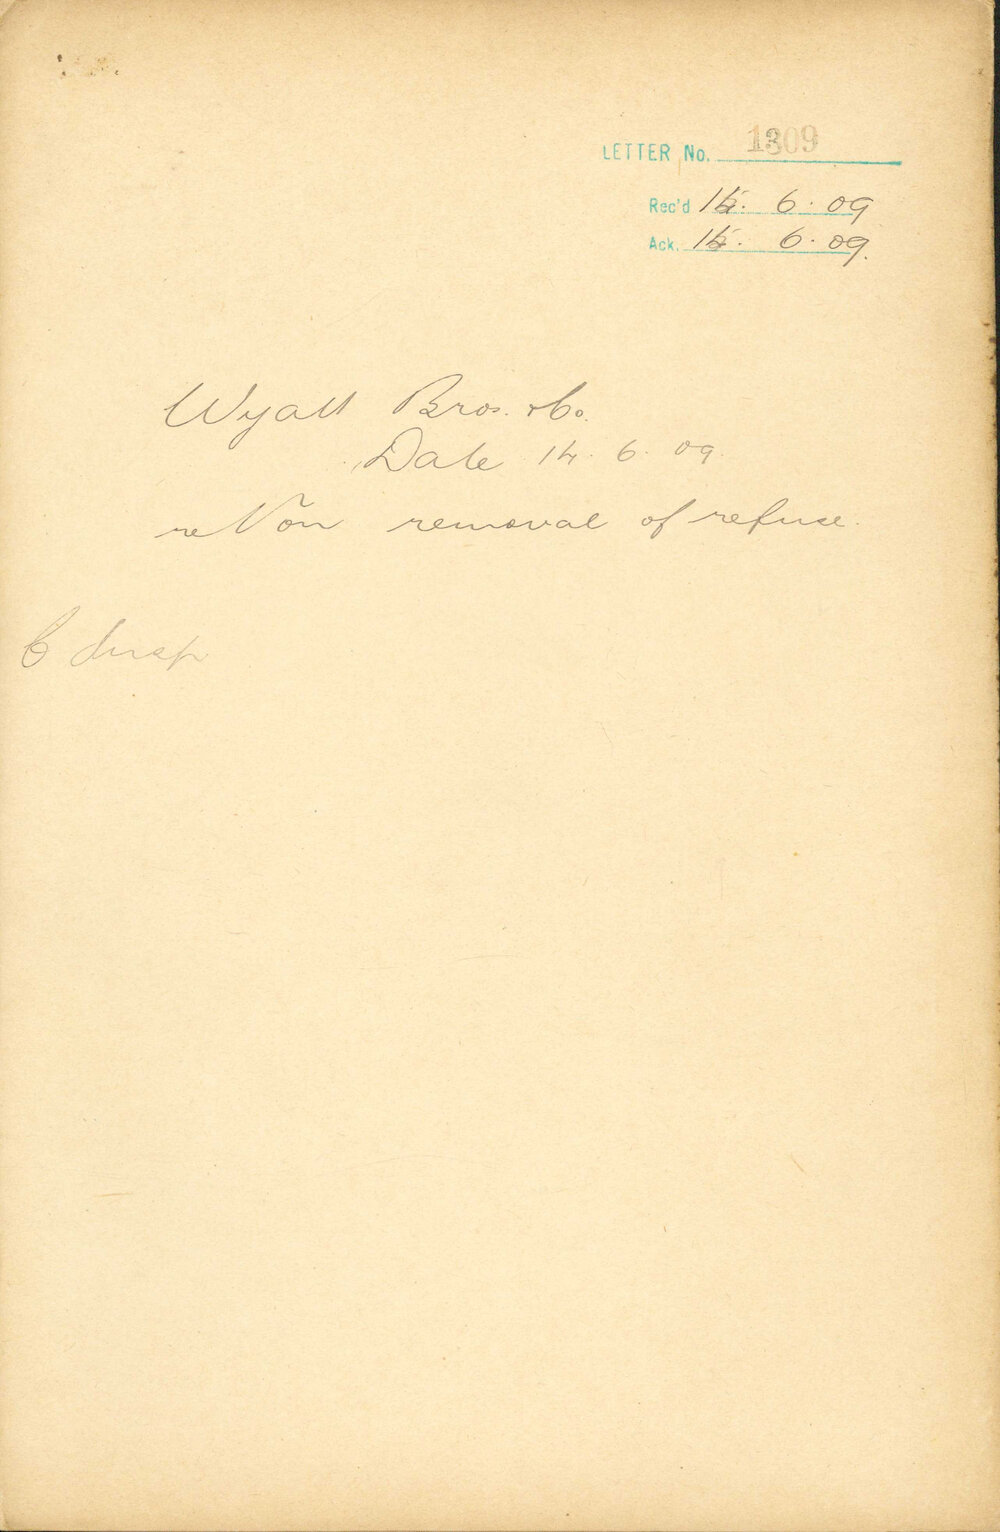 LETTER No. 1309
Rec'd 15. 6. 09
Ack. 15. 6. 09.
Wyatt Bros. & Co.
Date 14. 6. 09
re Non removal of refuse.
C Insp